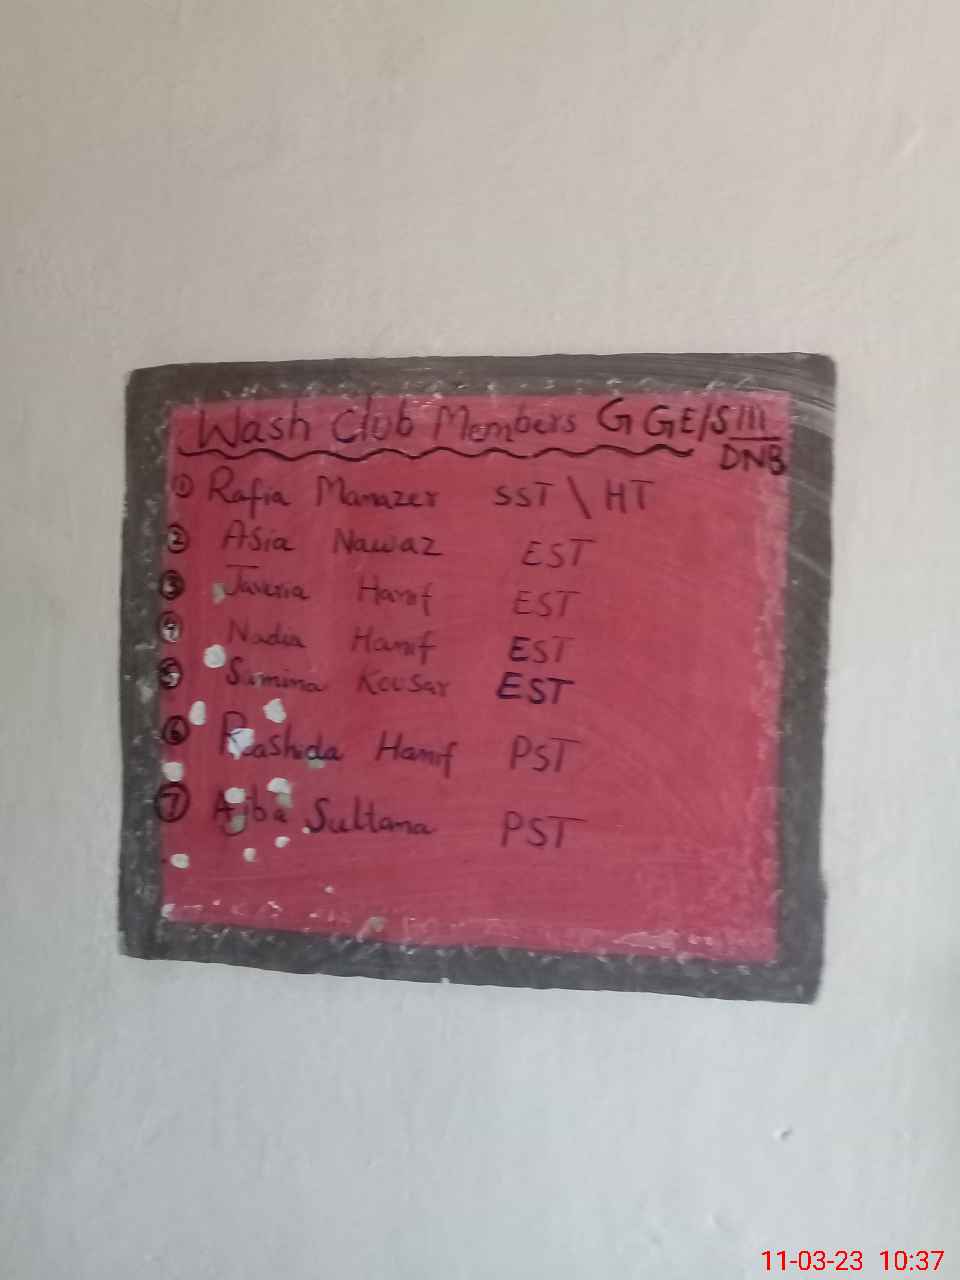 Wash Club Members G GE/S 111
DNB
1 Rafia Manazer SST \ HT
2 Asia Nawaz EST
3 Javeria Hanif EST
4 Nadia Hanif EST
5 Samina Kousar EST
6 Rashida Hanif PST
7 Sultana PST
11-03-23 10:37